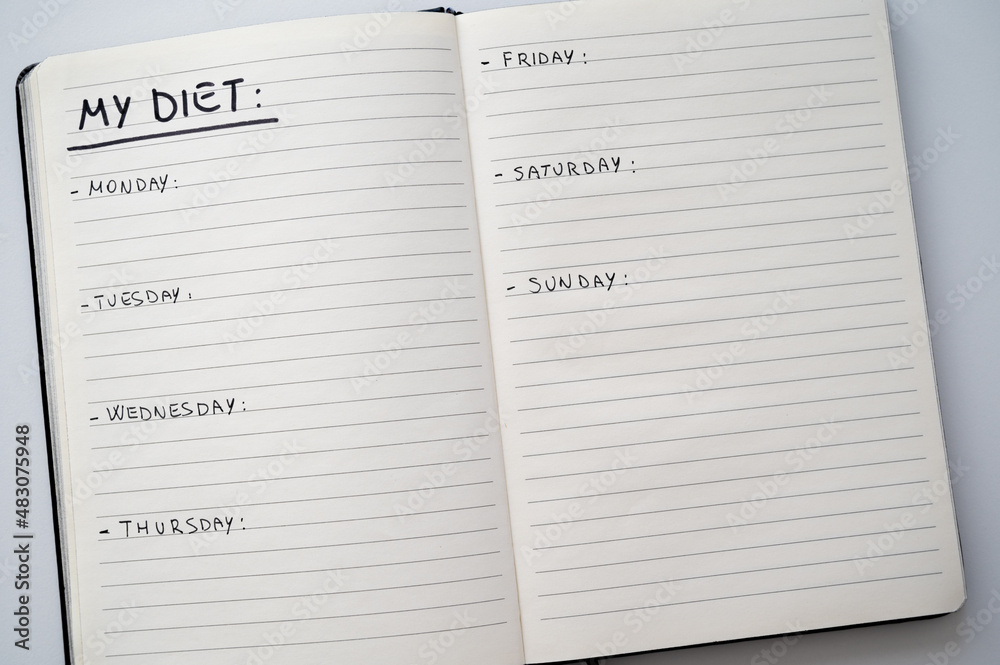 MY DIET:
- MONDAY:
- TUESDAY:
- WEDNESDAY:
- THURSDAY:
- FRIDAY:
- SATURDAY:
- SUNDAY:
Adobe Stock | #483075948